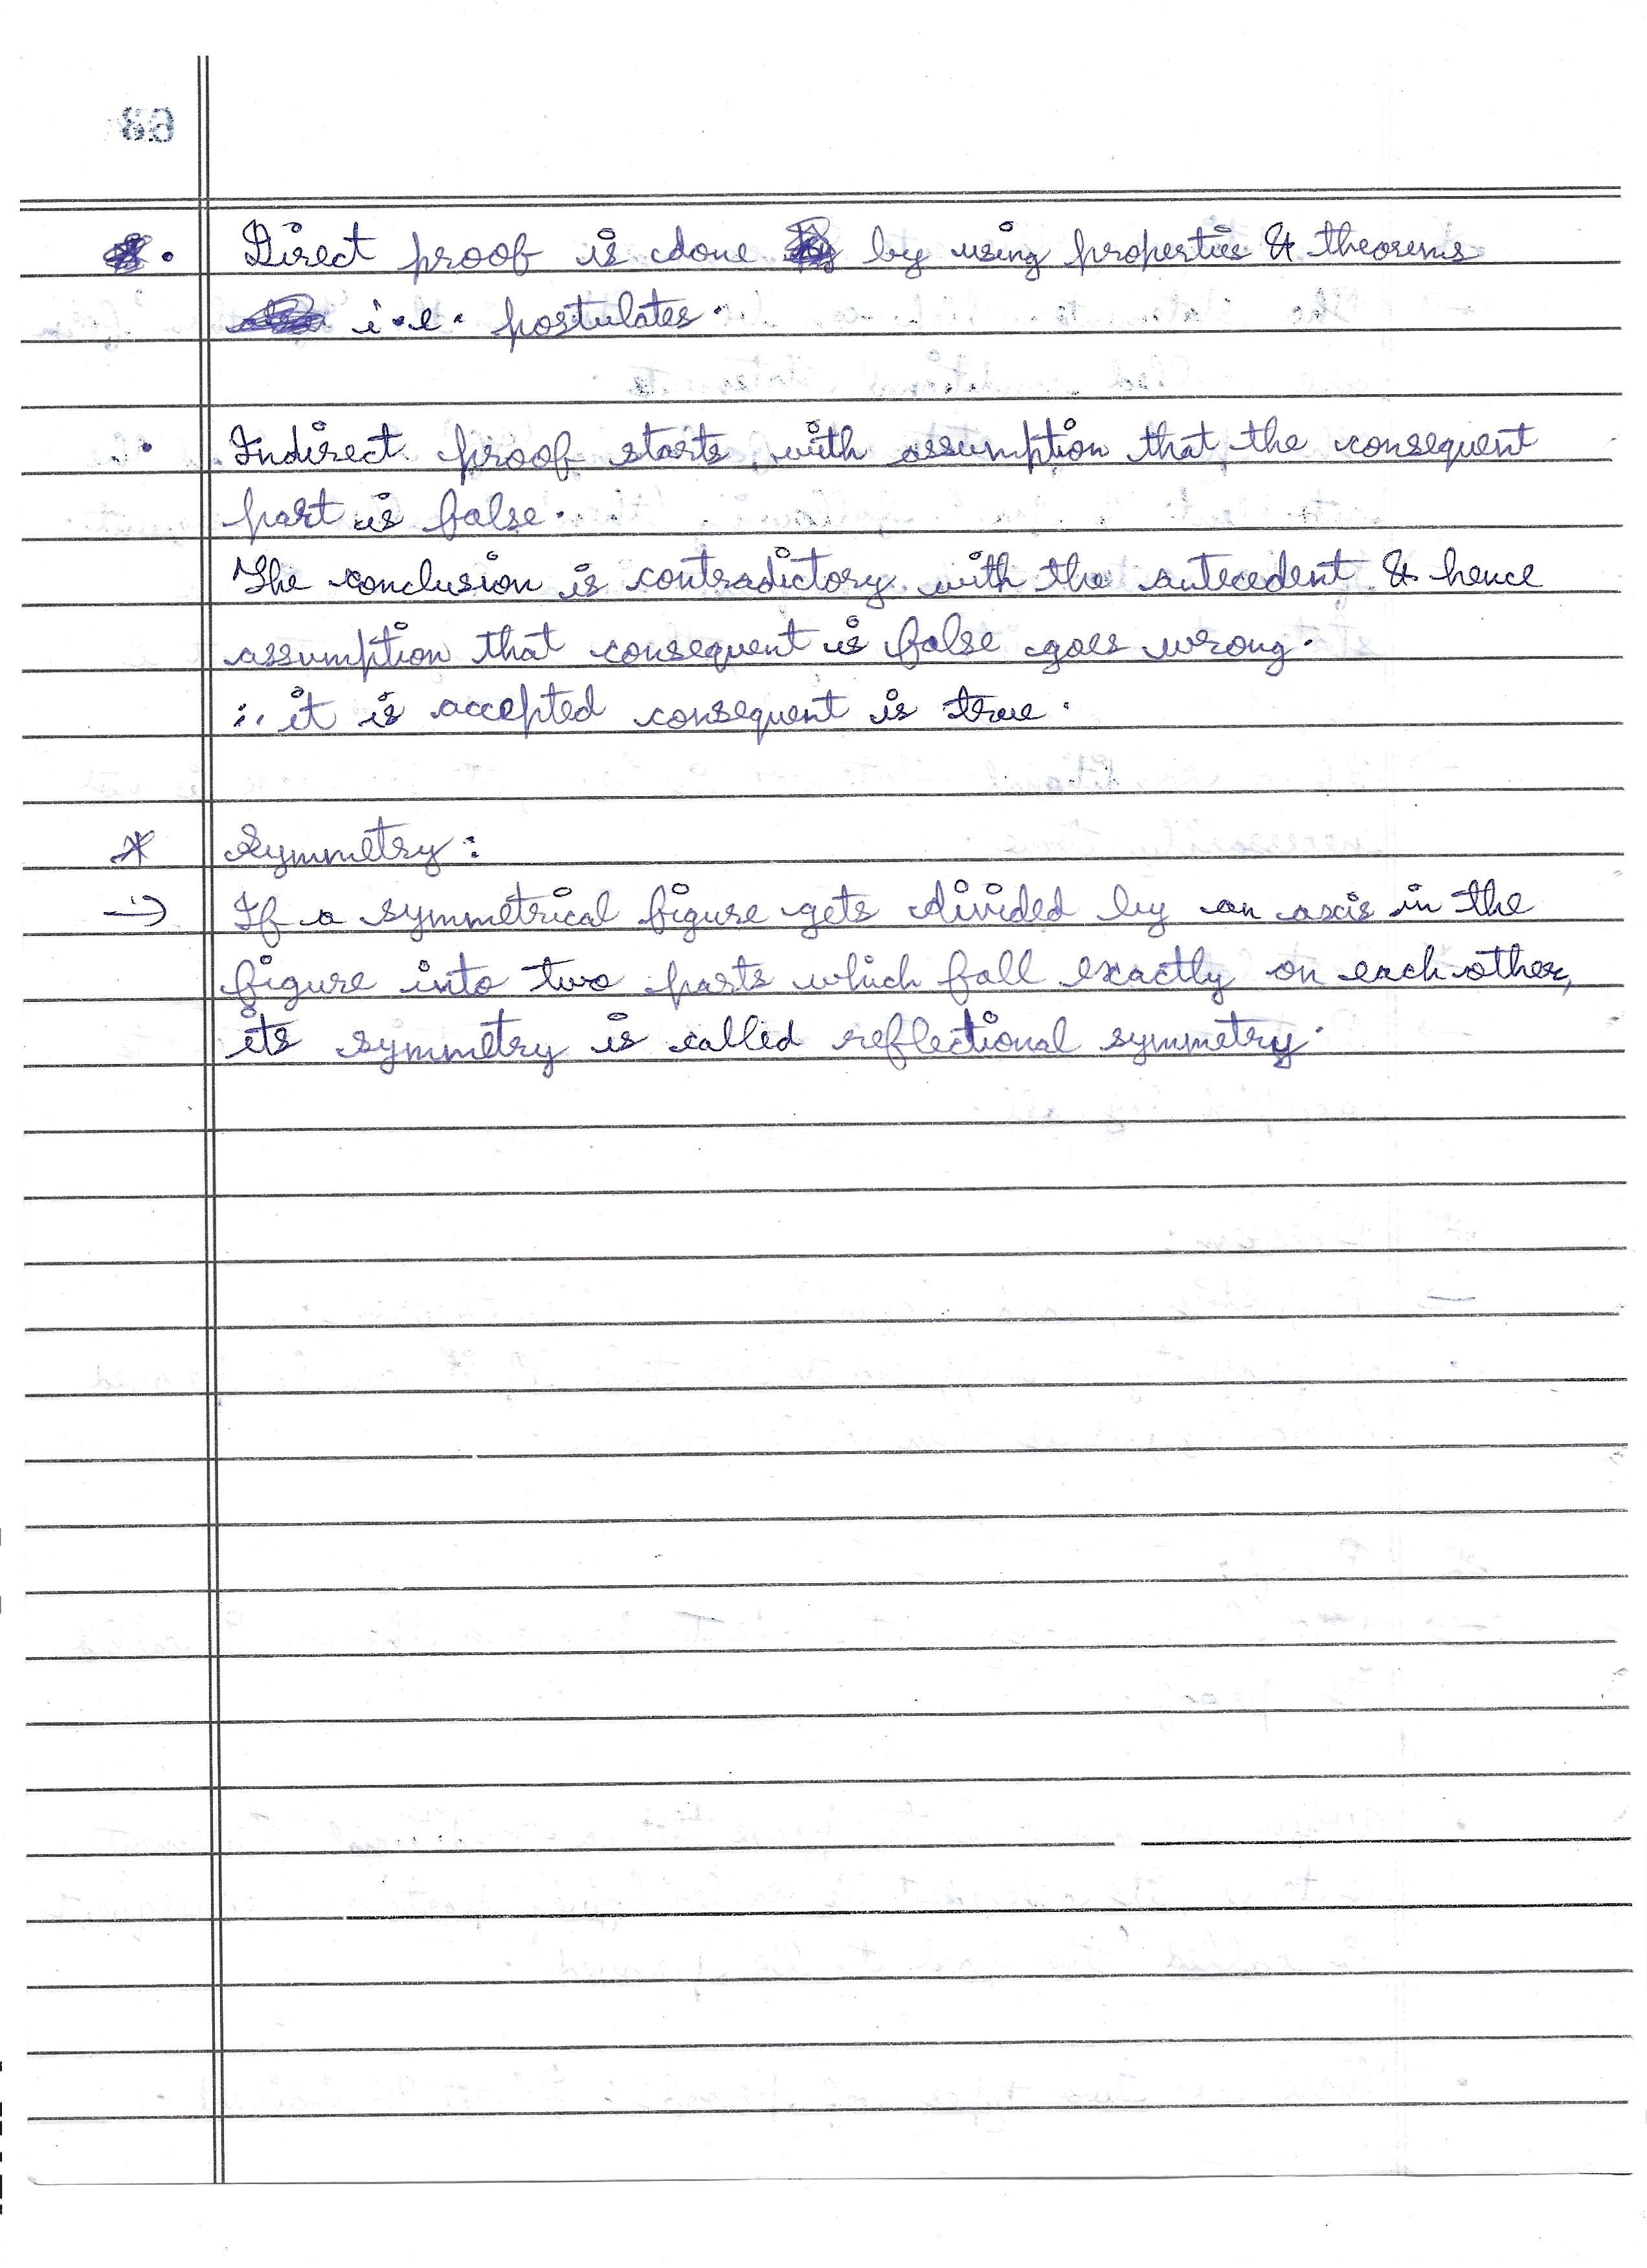 • Direct proof is done by using properties & theorems
i.e. postulates.
• Indirect proof starts with assumption that the consequent
part is false.
The conclusion is contradictory with the antecedent & hence
assumption that consequent is false goes wrong.
∴ it is accepted consequent is true.
* Symmetry:
→ If a symmetrical figure gets divided by an axis in the
figure into two parts which fall exactly on each other,
its symmetry is called reflectional symmetry.